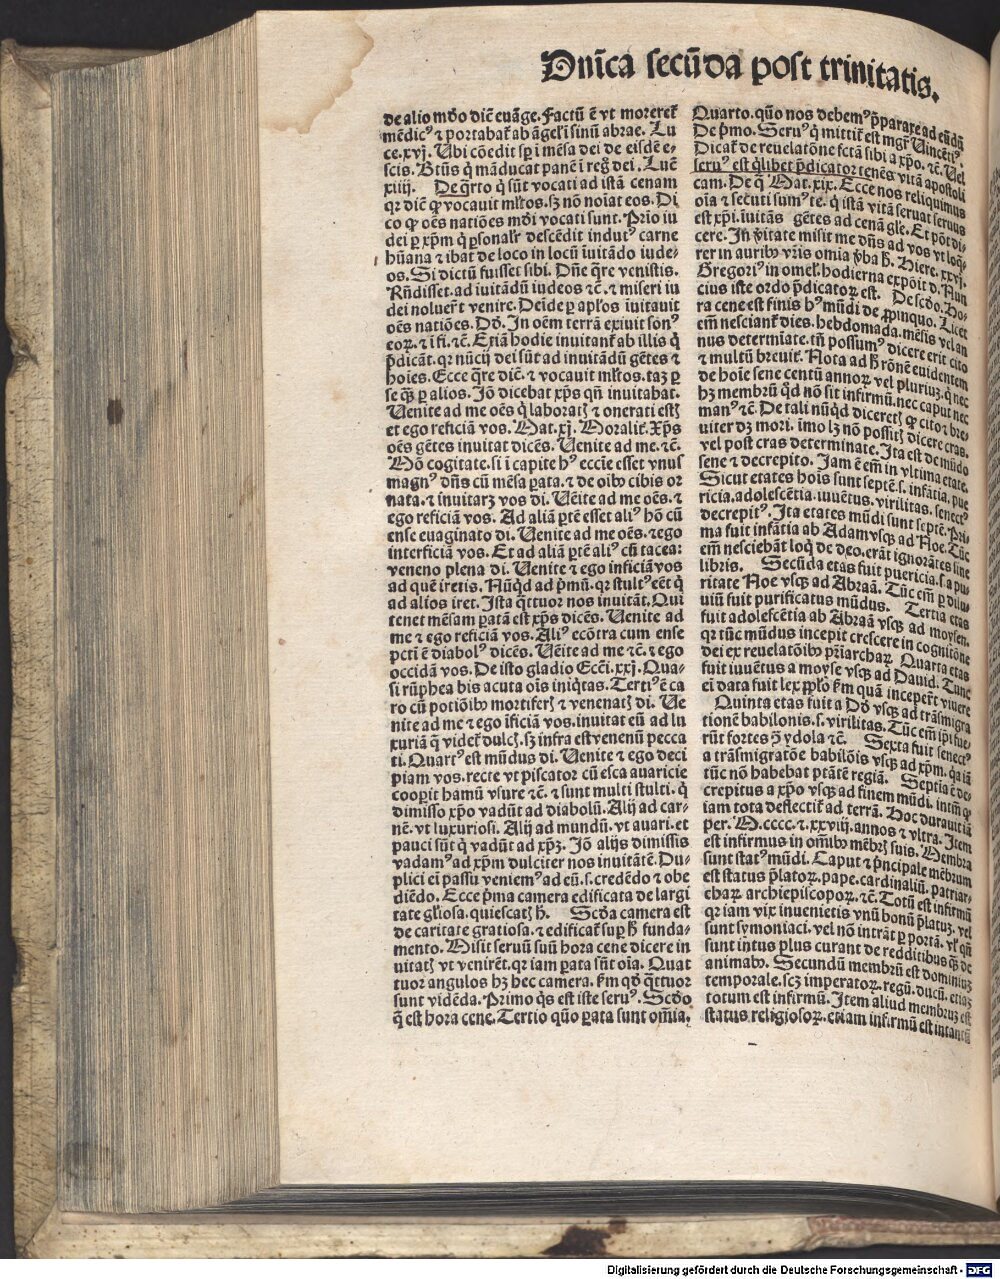 Dnīca secūda post trinitatis.
de alio mōo diē euāge. Factū ē vt morereť
mēdicꝰ ⁊ portabať ab āgeľi sinū abrae. Lu
ce.xvj. Ubi cōedit sꝑ ī mēsa dei de eisdē e⸗
scis. Btūs q̄ māducat panē ī regº dei. Lucē
xiiij. De q̄rto q̄ sūt vocati ad istā cenam
qr diē ꝙ vocauit mľtos. sꝫ nō noīat eos. Di
co ꝙ oēs natiōes mōi vocati sunt. Prio iu
dei ꝑ xp̄m q̄ ꝑsonalr̄ descēdit indutꝰ carne
hūana ⁊ ibat de loco in locū īuitādo iude⸗
os. Si dictū fuisset sibi. Dn̄e q̄re venistis.
Rn̄disset. ad iuitādū iudeos ⁊ē. ⁊ miseri iu
dei noluer̄t venire. Deīde ꝑ apľos iuitauit
oēs natiōes. Dō. In oēm terrā exiuit sonꝰ
eoꝝ. ⁊ ī fi. ⁊ē. Etiā hodie inuitanť ab illis q̄
p̄dicāt. qr nūcij dei sūt ad inuitādū gētes ⁊
hoīes. Ecce q̄re diē. ⁊ vocauit mľtos. taꝫ ꝑ
se qꝫ̄ ꝑ alios. Iō dicebat xp̄s qn̄ inuitabat.
Uenite ad me oēs q̄ laboratꝭ ⁊ onerati estꝭ
et ego reficiā vos. Mat.xj. Moralit̄. Xp̄s
oēs gētes inuitat dicēs. Uenite ad me. ⁊ē.
Mō cogitate. si ī capite hꝰ eccīe esset vnus
magnꝰ dn̄s cū mēsa ꝑata. ⁊ de oibꝫ cibis or
nata. ⁊ inuitarꝫ vos di. Uēite ad me oēs. ⁊
ego reficiā vos. Ad aliā ꝑtē esset aliꝰ hō cū
ense euaginato di. Uenite ad me oēs. ⁊ ego
interficiā vos. Et ad aliā ꝑtē aliꝰ cū tacea:
veneno plena di. Uenite ⁊ ego inficiā vos
ad quē iretis. Nūqd ad p̄mū. qr stultꝰ eēt q̄
ad alios iret. Ista q̄ttuor nos inuitāt. Qui
tenet mēsam ꝑatā est xp̄s dicēs. Uenite ad
me ⁊ ego reficiā vos. Aliꝰ ecōtra cum ense
pcti ē diabolꝰ dicēs. Uēite ad me ⁊ē. ⁊ ego
occidā vos. De isto gladio Ecci.xxj. Qua⸗
si rūphea bis acuta oīs iniq̄tas. Tertiꝰ ē ca
ro cū potiōibꝫ mortiferꝭ ⁊ venenatꝭ di. Ue
nite ad me ⁊ ego īficiā vos. inuitat eū ad lu
xuriā q̄ videť dulcꝭ. sꝫ infra est venenū pecca
ti. Quartꝰ est mūdus di. Uenite ⁊ ego deci
piam vos. recte vt piscator cū esca auaricie
cooperit hamū vsure ⁊ē. ⁊ sunt multi stulti. q̄
dimisso xp̄o vadūt ad diabolū. Alij ad car⸗
nē. vt luxuriosi. Alij ad mundū. vt auari. et
pauci sūt q̄ vadūt ad xp̄ꝫ. Iō alijs dimissis
vadamꝰ ad xp̄m dulciter nos inuitātē. Du⸗
plici eī passu veniemꝰ ad eū. s. credēdo ⁊ obe
diēdo. Ecce p̄ma camera edificata de largi
tate gľiosa. quiescatꝭ h̄. Scōa camera est
de caritate gratiosa. ⁊ edificať suꝑ h̄ funda⸗
mento. Misit seruū suū hora cene dicere in
uitatꝭ vt venirēt. qr iam ꝑata sūt oīa. Quat
tuor angulos hꝫ hec camera. ẜm qō q̄ttuor
sunt vidēda. Primo q̄s est iste seruꝰ. Scōo
q̄ est hora cene. Tertio quō ꝑata sunt om̄ia.
Quarto. quō nos debemꝰ p̄parare ad eūdū
De p̄mo. Seruꝰ q̄ mittiť est mgr̄ Uincētiꝰ.
Dicať de reuelatōne fctā sibi a xp̄o. ⁊ē. Uel
seruꝰ est q̄libet p̄dicator tenēs vitā apostoli
cam. De q̄ Mat.xix. Ecce nos reliquimus
oīa ⁊ secuti sumꝰ te. q̄ istā vitā seruat seruus
est xp̄i. iuitās gētes ad cenā gľe. Et pōt di⸗
cere. In v̄itate misit me dn̄s ad vos vt loq̄⸗
rer in auribꝫ vr̄is omīa v̄ba h̄. Hiere.xxvj.
Gregoriꝰ in omeľ. hodierna expōit ꝺ. Nun
cius iste ordo p̄dicatoꝝ est. De scōo. Ho⸗
ra cene est finis hꝰ mūdi de ꝓpinquo. Licet
em̄ nescianť dies. hebdomada. mēsis vel an
nus determīate. tn̄ possumꝰ dicere erit cito
⁊ multū breuit̄. Nota ad h̄ rōnē euidentem
de hoīe sene centū annoꝝ vel pluriuꝫ. q̄ nec
hꝫ membrū qd nō sit infirmū. nec caput nec
manꝰ ⁊ē. De tali nūqd diceretꝭ ꝙ cito ⁊ bre⸗
uiter dꝫ mori. imo lꝫ nō possitꝭ dicere cras.
vel post cras determinate. Ita est de mūdo
sene ⁊ decrepito. Iam ē em̄ in vltima etate.
Sicut etates hoīs sunt septē. s. infātia. pue
ricia. adolescētia. iuuētus. virilitas. senectꝰ
decrepitꝰ. Ita etates mūdi sunt septē. Pri⸗
ma fuit infātia ab Adam vsqꝫ ad Noe. Tūc
em̄ nesciebāt loq̄ de deo. erāt ignorātes sine
libris. Secūda etas fuit puericia. s. a pu⸗
ritate Noe vsqꝫ ad Abraā. Tūc em̄ ꝑ dilu⸗
uiū fuit purificatus mūdus. Tertia etas
fuit adolescētia ab Abraā vsqꝫ ad moysen.
qr tūc mūdus incepit crescere in cognitōne
dei ex reuelatōibꝫ pr̄iarchaꝝ. Quarta etas
fuit iuuētus a moyse vsqꝫ ad Dauid. Tunc
ei data fuit lex pplo ẜm quā inceper̄t viuere
Quinta etas fuit a Dō vsqꝫ ad trāsmigra
tionē babilonis. s. virilitas. Tūc em̄ ip̄i fue⸗
rūt fortes ꝯ̄ ydola ⁊ē. Sexta fuit senectꝰ
a trāsmigratōe babilōis vsqꝫ ad xp̄m. qa iā
tūc nō habebat ptātē regiā. Septīa ē de⸗
crepitus a xp̄o vsqꝫ ad finem mūdi. intm̄ ꝙ
iam tota deflectiť ad terrā. Hoc durauit iā
per. M.cccc.⁊.xxviij. annos ⁊ vltra. Item
est infirmus in om̄ibꝫ mēbrꝭ suis. Membra
sunt statꝰ mūdi. Caput ⁊ p̄ncipale mēbrum
est status p̄latoꝝ. pape. cardinaliū. patriar⸗
chaꝝ. archiepiscopoꝝ. ⁊ē. Totū est infirmū
qr iam vix inuenietis vnū bonū p̄latuꝫ. vel
sunt symoniaci. vel nō intrāt ꝑ portā. vľ qn̄
sunt intus plus curant de redditibus qꝫ̄ de
animabꝫ. Secundū membrū est dominiuꝫ
temporale. scꝫ imperatoꝝ. regū. ducū. etiaꝫ
totum est infirmū. Item aliud membruꝫ est
status religiosoꝝ. etiam infirmū est intantū
Digitalisierung gefördert durch die Deutsche Forschungsgemeinschaft - DFG